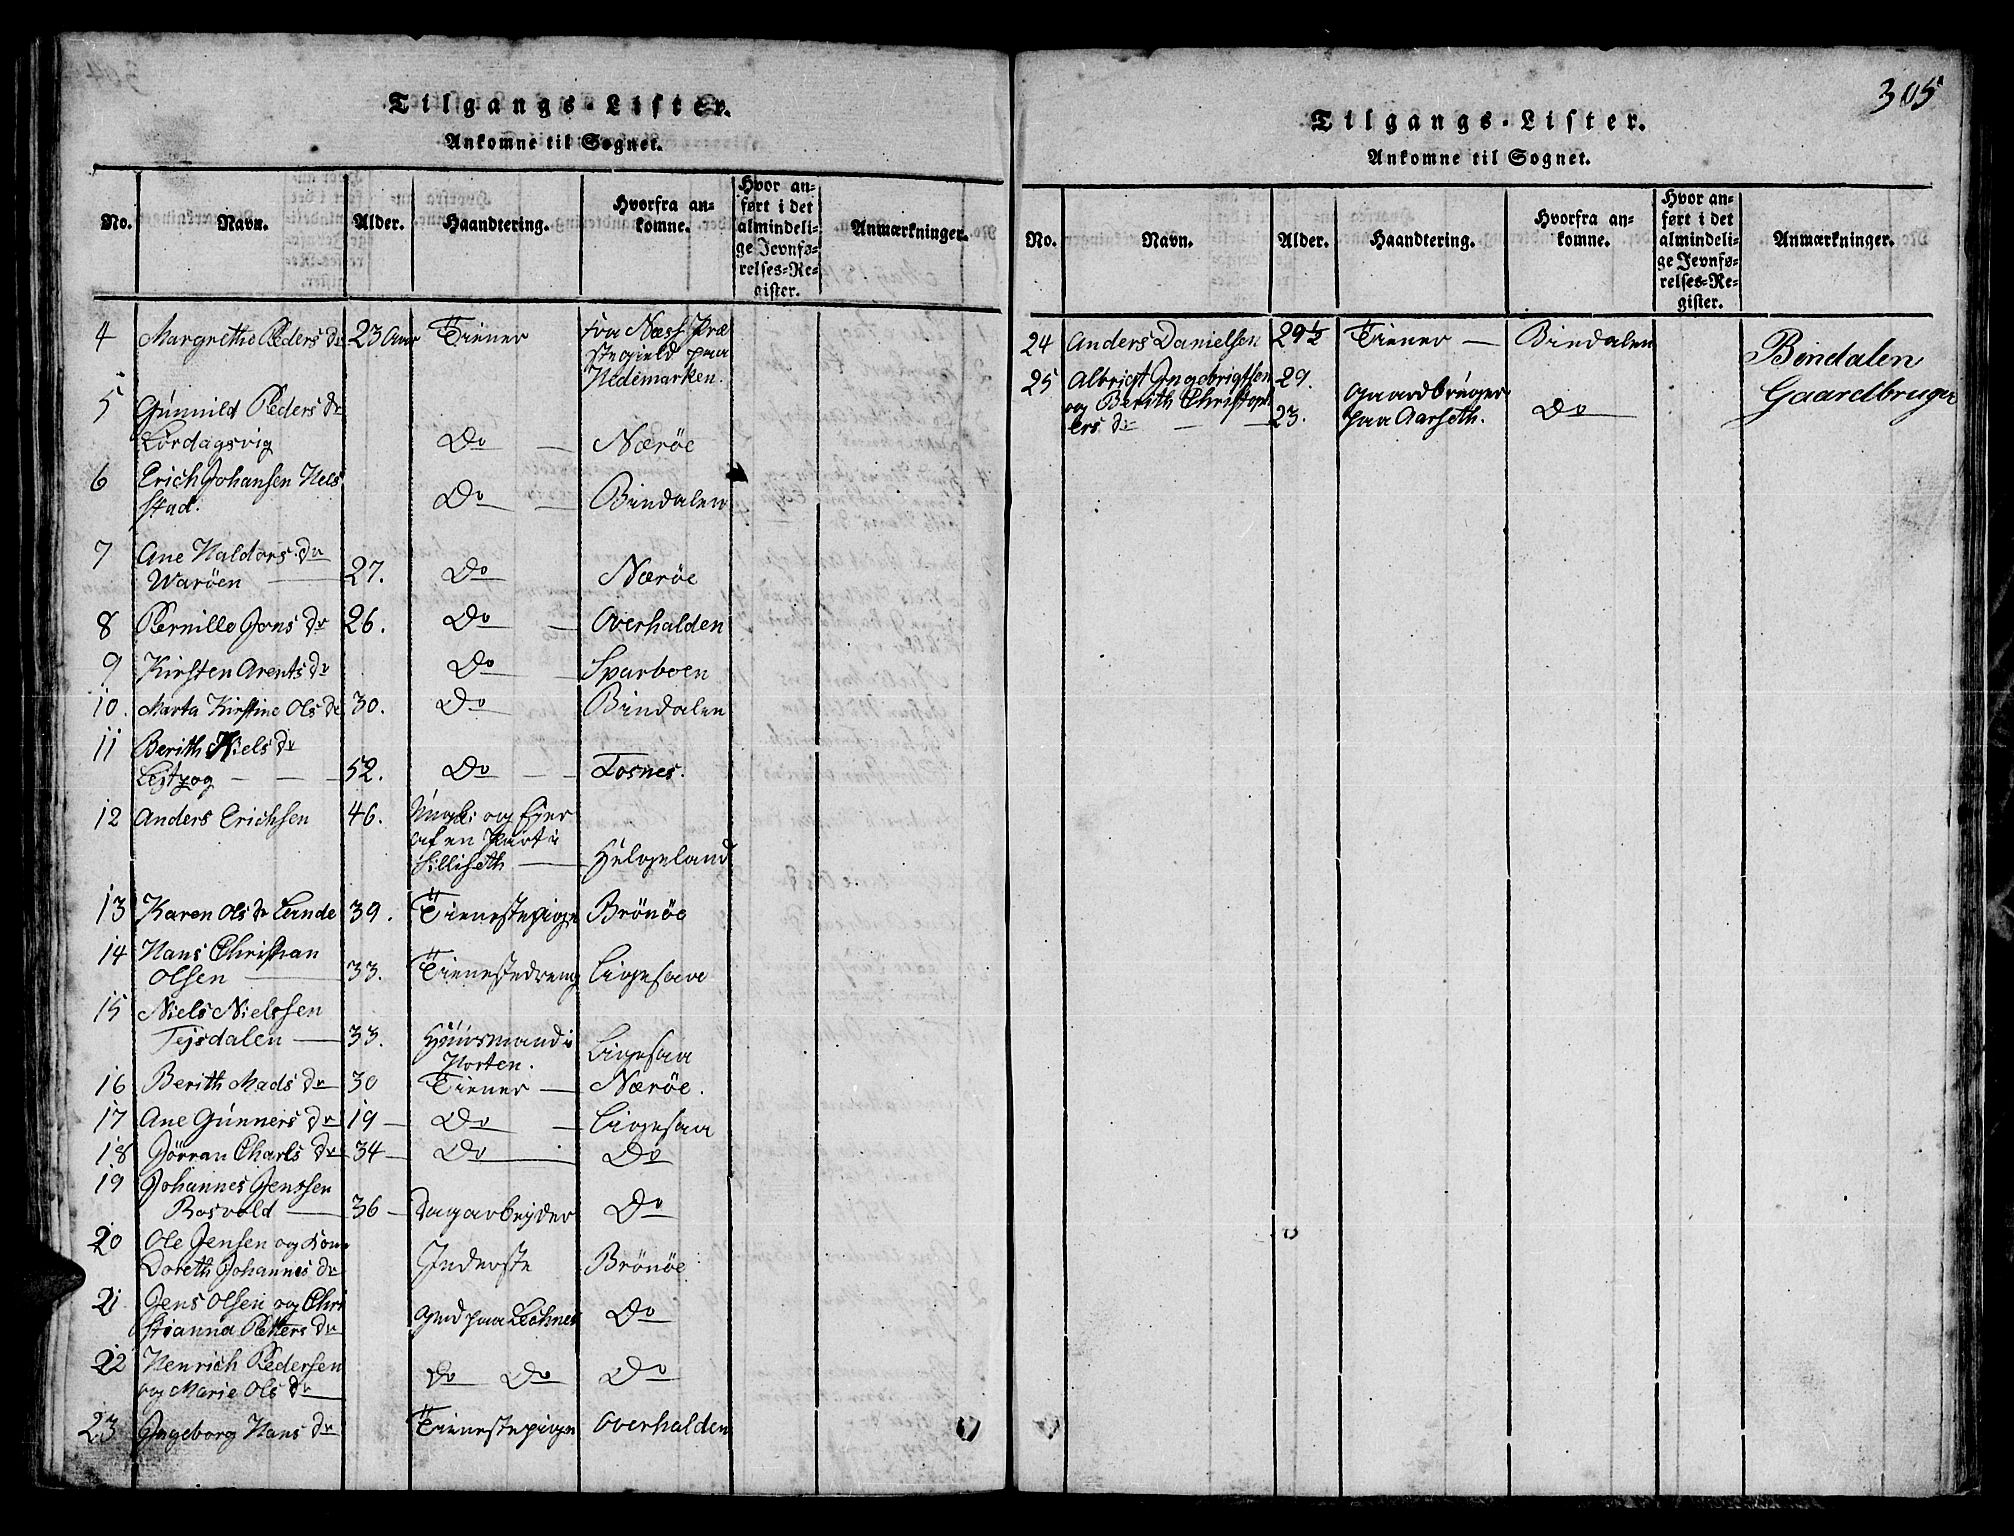 Tilgangs-Lister.
Ankomne til Sognet.
No. Navn. Alder. Haandtering. Hvorfra ankomne. Hvor anført i det almindelige Jevnførelses-Register. Anmærkninger.
4 Margrethe Peders Dr 23 Aar Tiener fra Næss Præ
stegield paa
Hedemarken.
5 Gunnild Peders Dr
Lördagsvig Do Næröe
6 Erich Johansen Hels
stad. Do Bindalen
7 Ane Haldors Dr
Waröen 27. Do Næröe
8 Pernille Jons Dr 26. Do Overhalden
9 Kirsten Arents Dr Do Sparboen
10. Marta Kirstine Ols Dr 30. Do Bindalen
11 Berith Niels Dr
52. Do Fosnes.
12 Anders Erichsen 46. og Ejer
af en Part i
Silliseth Helgeland
13 Karen Ols Dr Lande 39. Tienestepige Brönöe
14 Hans Christian
Olsen 33. Tienestedreng Ligesaa
15 Niels Nielssen
Tejsdalen 33. Huusmand i
Horten. Ligesaa
16 Berith Mads Dr 30 Tiener Næröe.
17 Ane Gunners Dr 19 Do Ligesaa
18 Jörran Charls Dr 34 Do Do
19 Johannes Jenssen
Rosvold 36 Dagarbejder Do
20 Ole Jensen og Kone
Doreth Johannes Dr Inderste Brönöe
21 Jens Olsen og Chri
stianna Petters Dr Gmd paa Leknes Do
22 Henrich Pedersen
og Marie Ols Dr Do Do Do
23 Ingeborg Hans Dr Tienestepige Overhalden
305
Tilgangs-Lister.
Ankomne til Sognet.
No. Navn. Alder. Haandtering. Hvorfra ankomne. Hvor anført i det almindelige Jevnførelses-Register. Anmærkninger.
24 Anders Danielsen 29½ Tiener Bindalen Bindalen
25 Albrigt Ingebrigtsen 29. Gaardbruger Gaardbruger
og Berith Christoph
ers Dr 23. paa Aarseth. Do